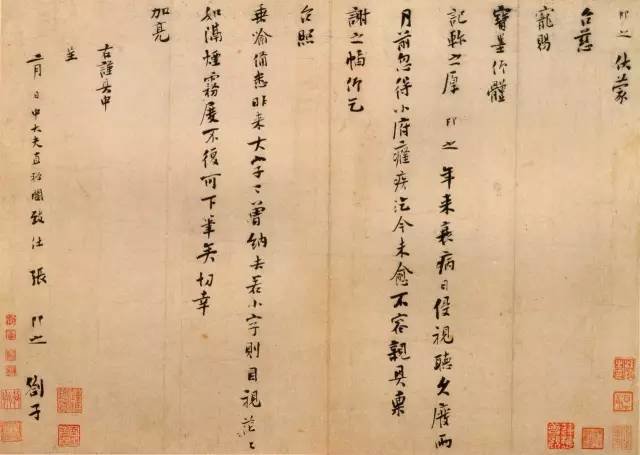 即之伏蒙
台慈
寵賜
寶墨仰體
記軫之厚即之年來衰病日侵視聽久廢兩
月前忽得小府癰疾迄今未愈不容親具稟
謝之幅仰乞
台照
垂諭備悉昨來大字已曾納去若小字則目視茫茫
如滿煙霧屢不復可下筆矣切幸
加亮
右謹具申
呈
二月日中大夫直秘閣致仕張即之劄子